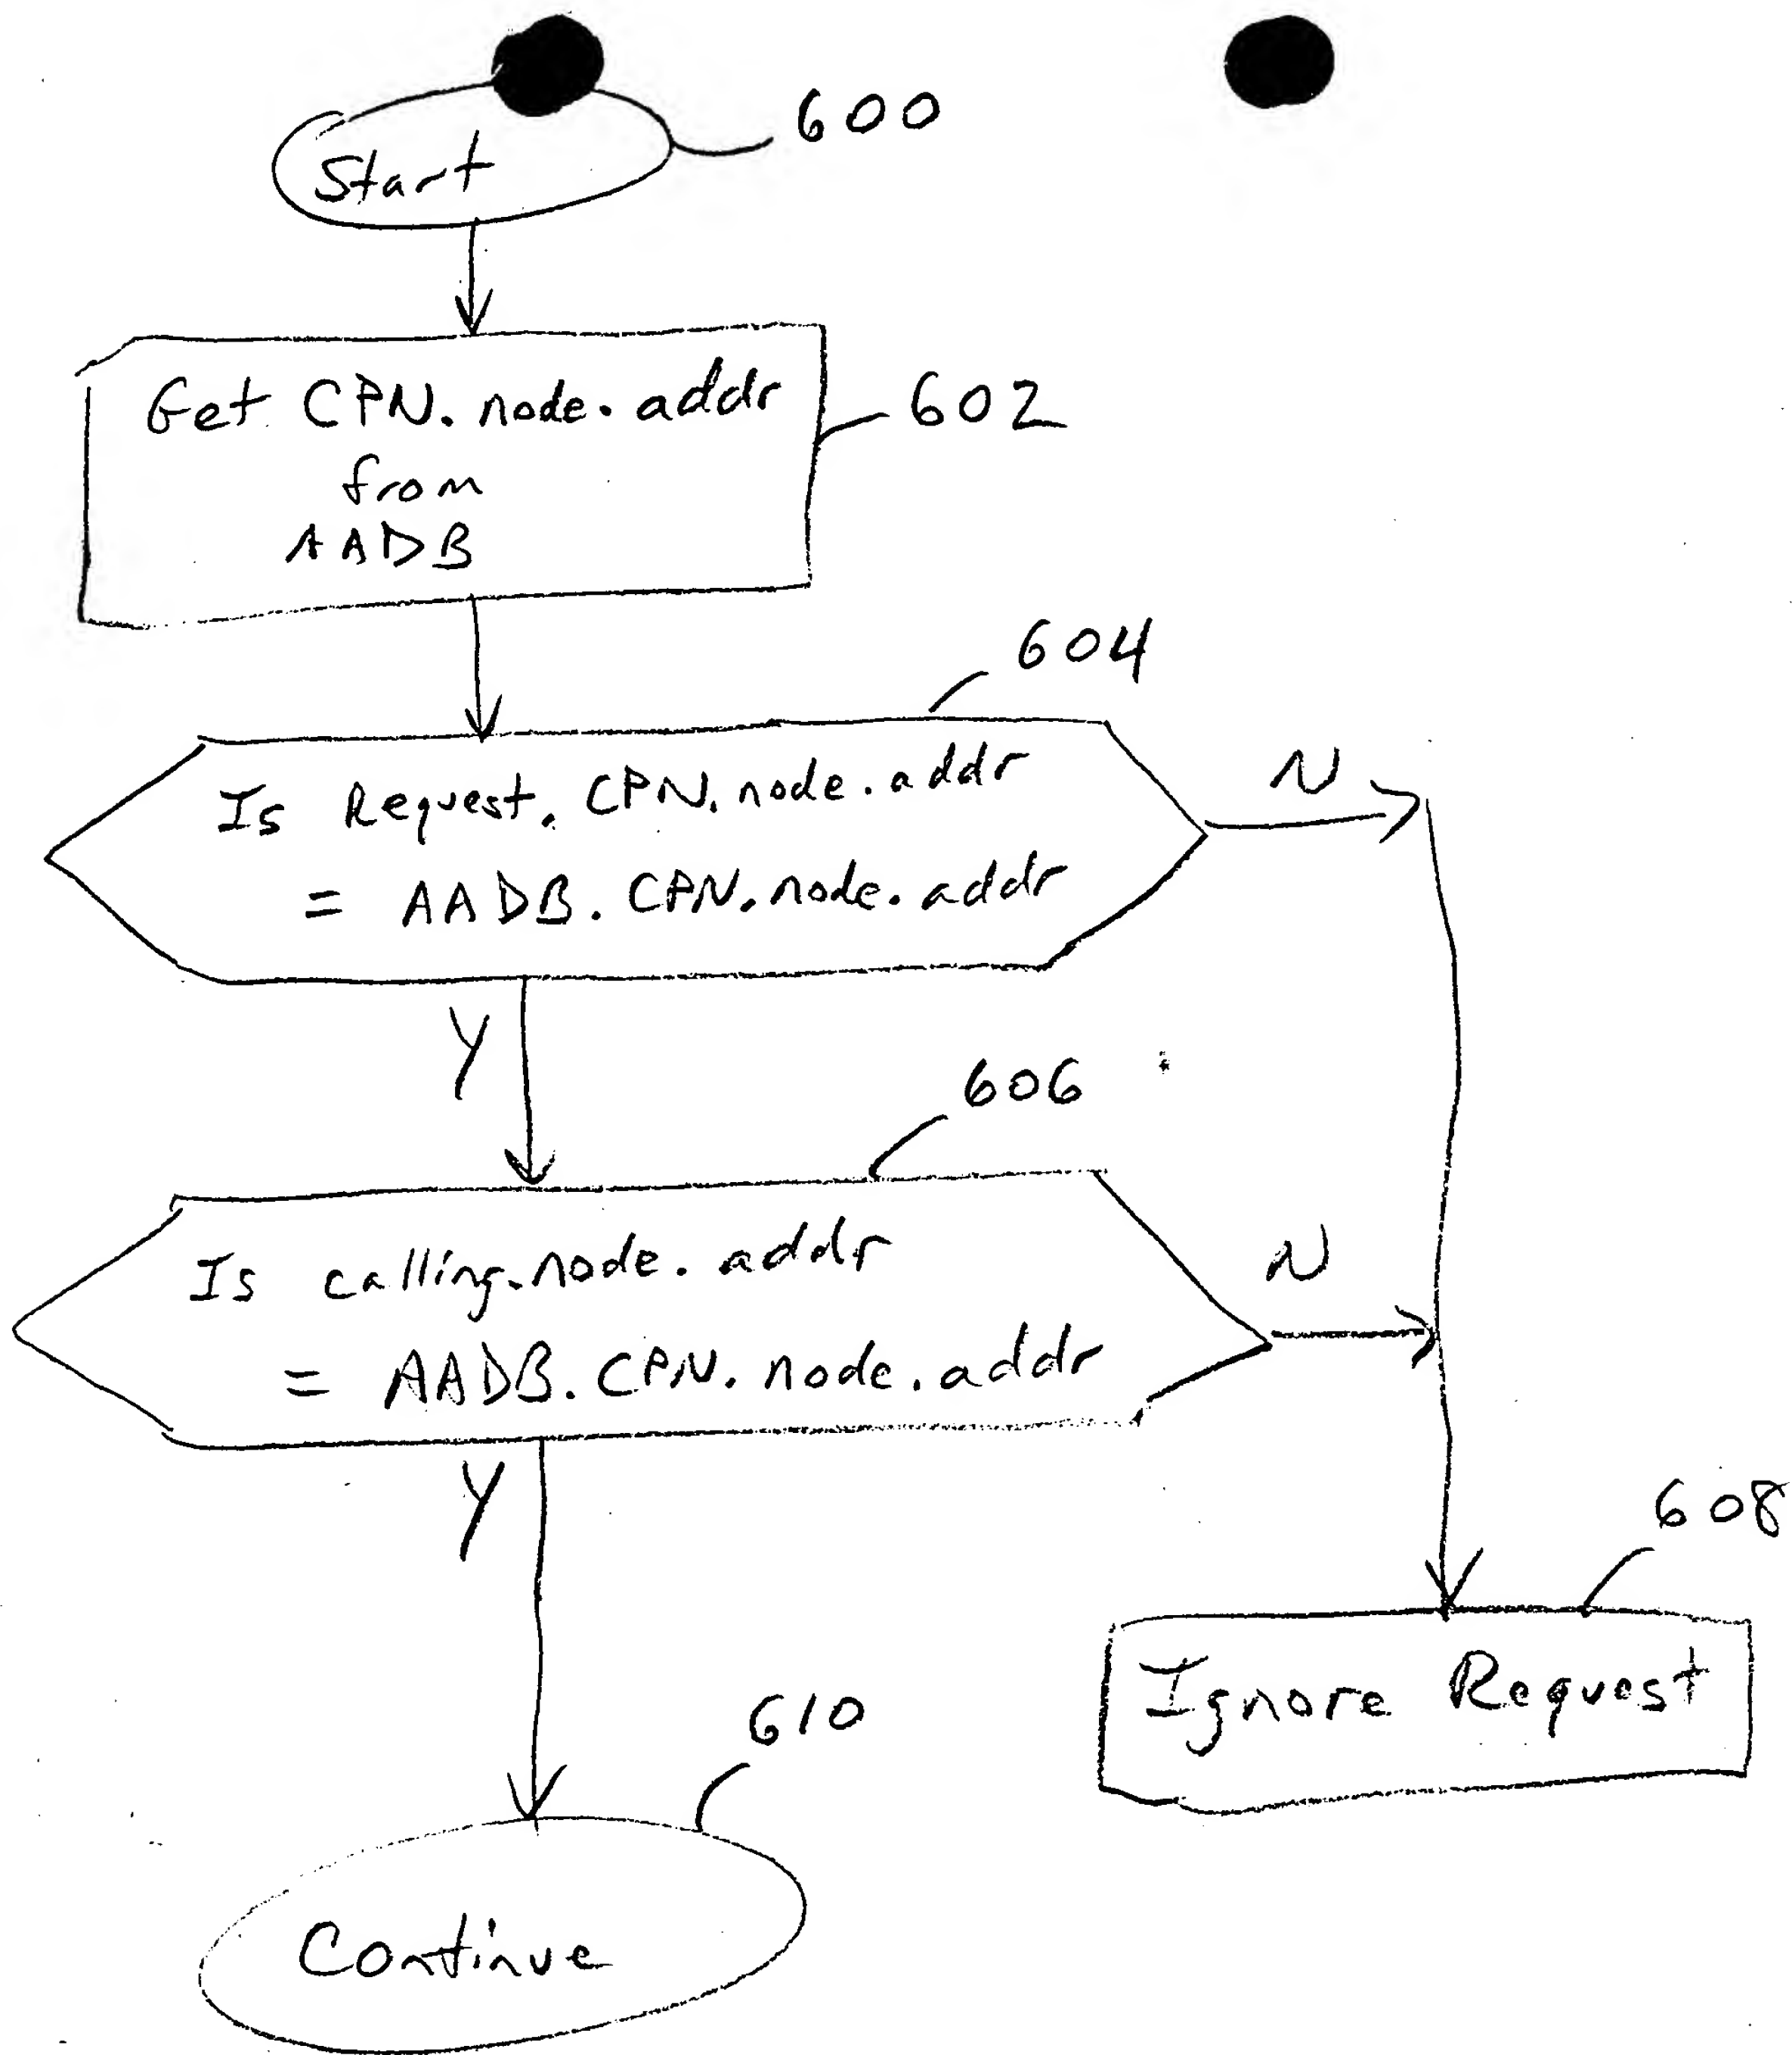 600
Start
Get CPN.node.addr
from
AADB
602
604
Is Request.CPN.node.addr
= AADB.CPN.node.addr
N
Y
606
Is calling.node.addr
= AADB.CPN.node.addr
N
Y
608
Ignore Request
610
Continue